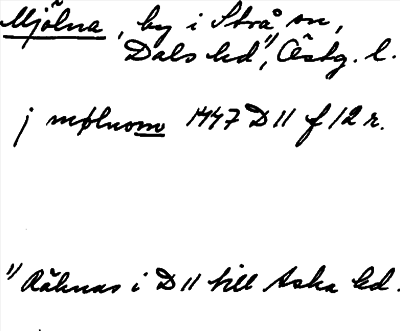 Mjölna, by i Strå sn,
Dals hd¹⁾, Östg. l.
j mølnom 1447 D 11 f 12 r.
¹⁾ Räknas i D 11 till Aska hd.